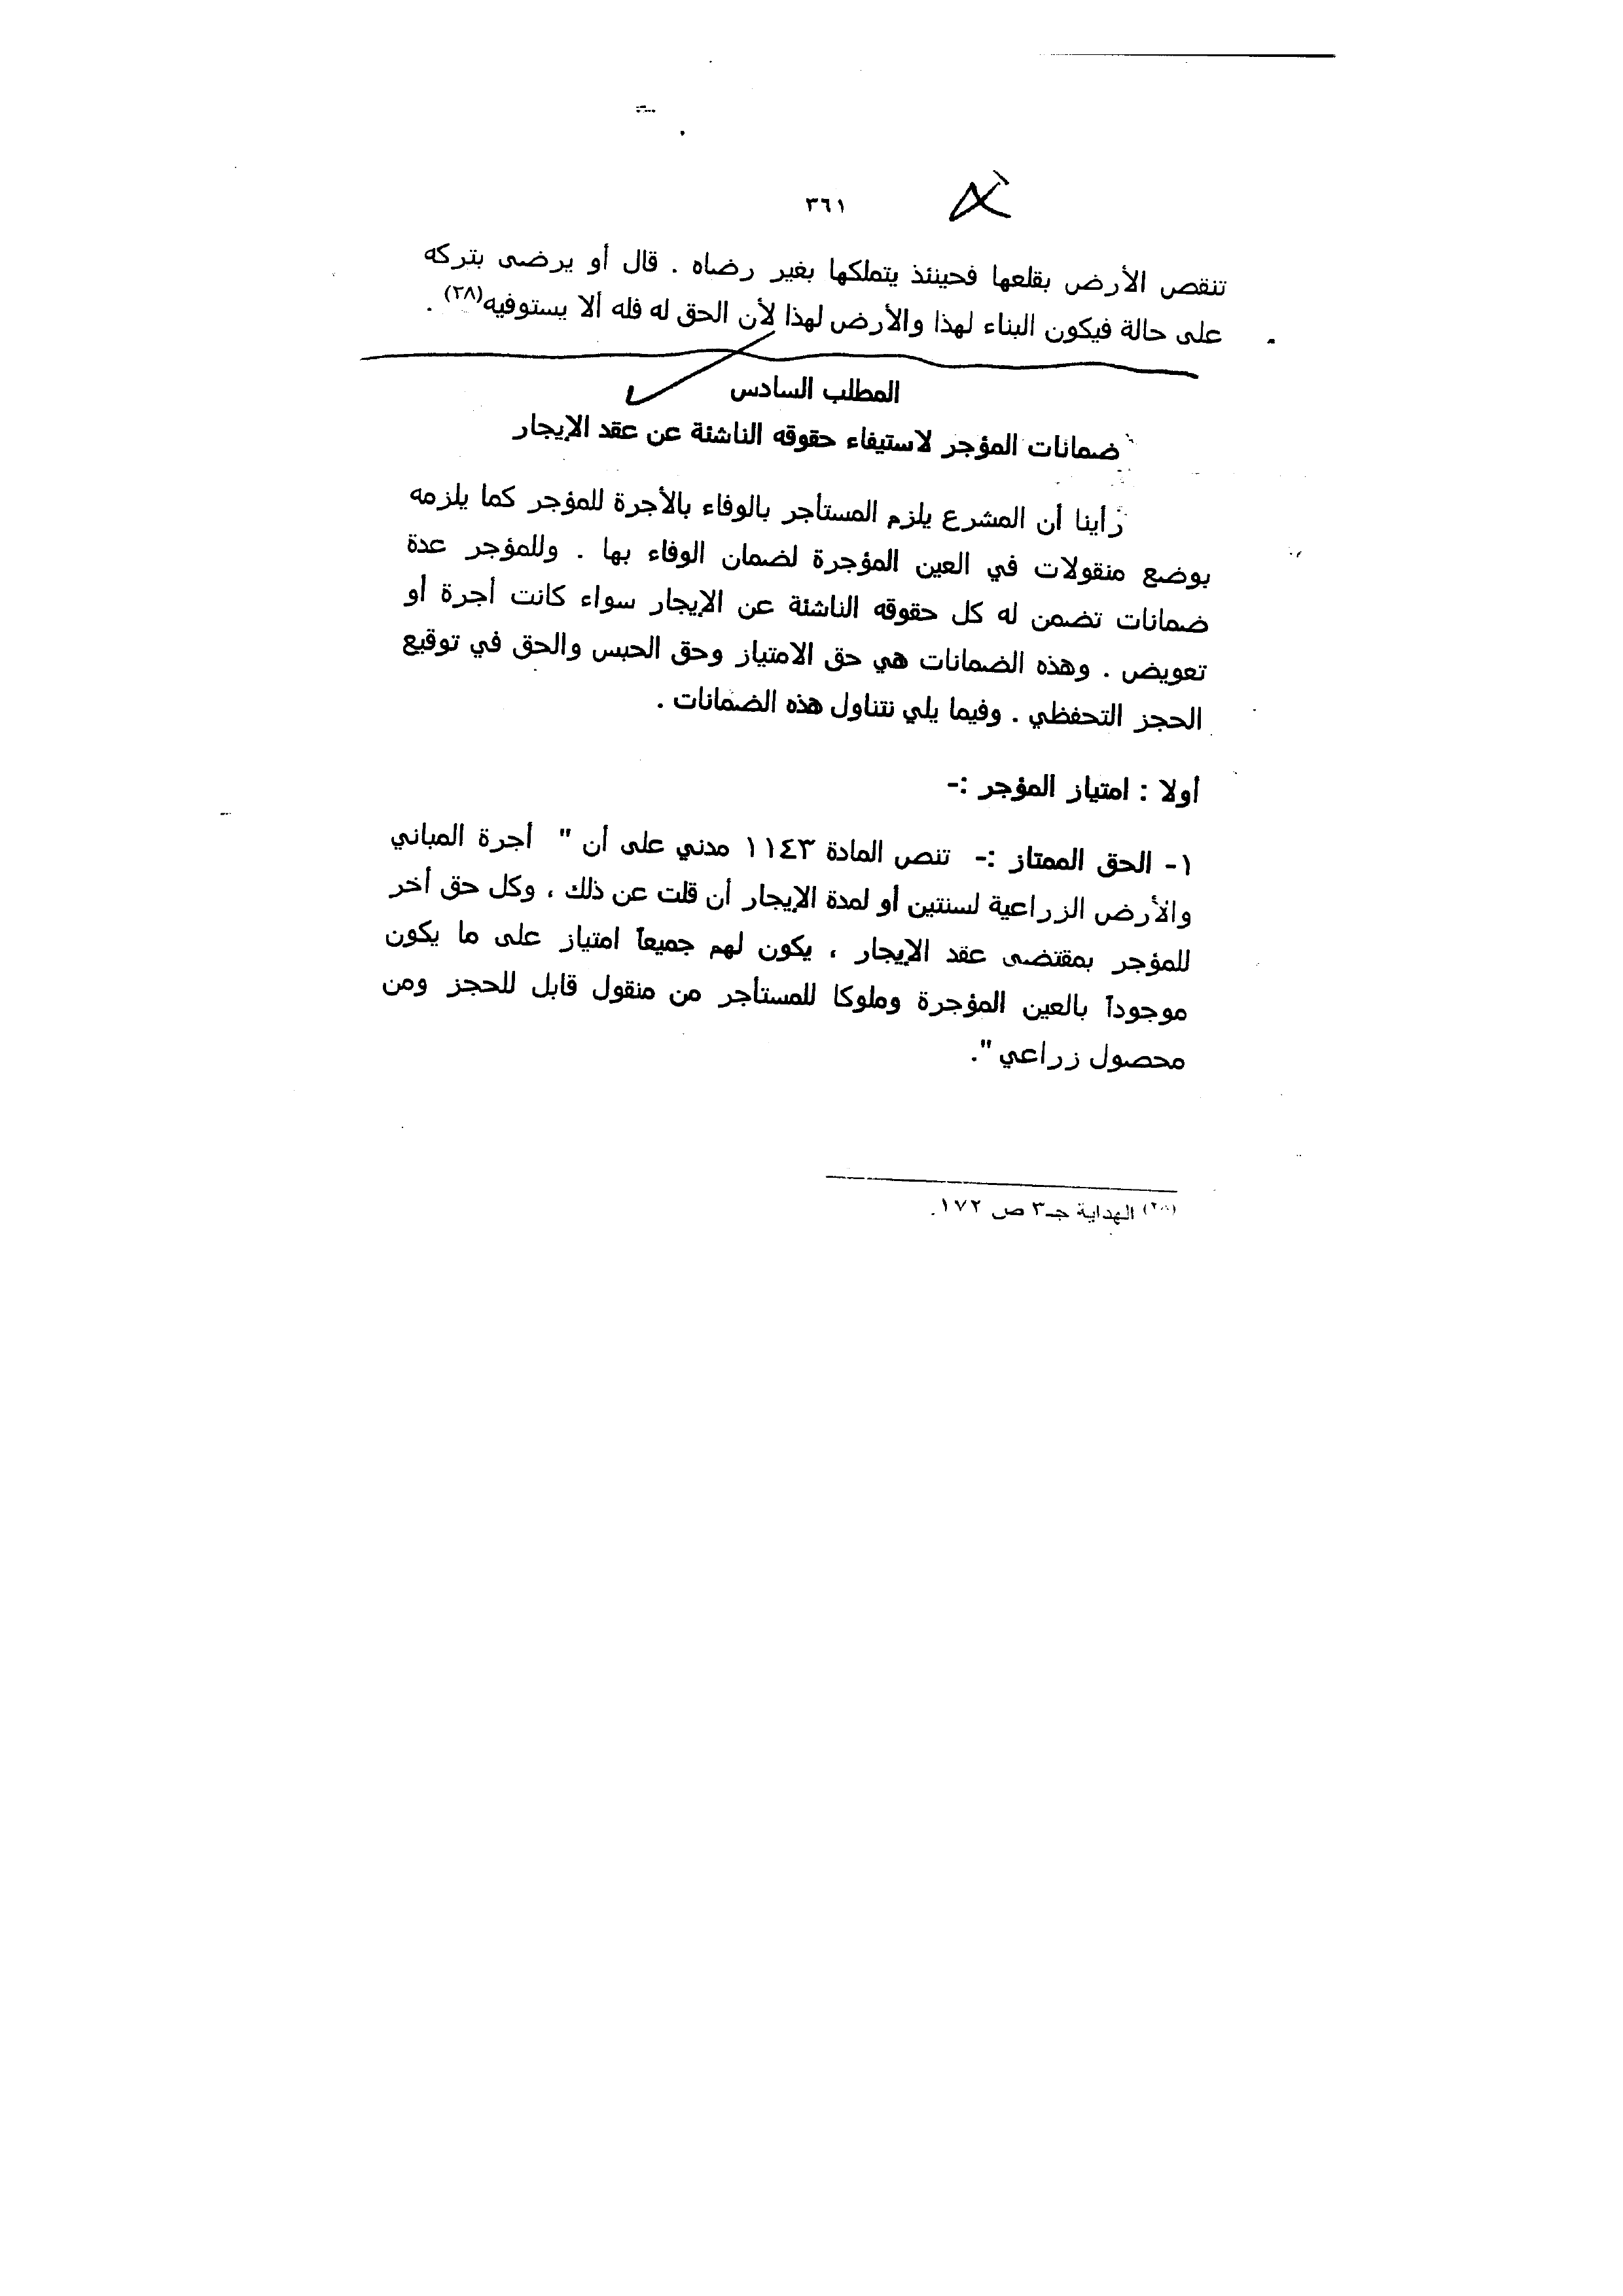 ٣٦١
تنقص الأرض بقلعها فحينئذ يتملكها بغير رضاه . قال أو يرضى بتركه
على حالة فيكون البناء لهذا والأرض لهذا لأن الحق له فله ألا يستوفيه(٢٨) .
المطلب السادس
ضمانات المؤجر لاستيفاء حقوقه الناشئة عن عقد الإيجار
رأينا أن المشرع يلزم المستأجر بالوفاء بالأجرة للمؤجر كما يلزمه
بوضع منقولات في العين المؤجرة لضمان الوفاء بها . وللمؤجر عدة
ضمانات تضمن له كل حقوقه الناشئة عن الإيجار سواء كانت أجرة أو
تعويض . وهذه الضمانات هي حق الامتياز وحق الحبس والحق في توقيع
الحجز التحفظي . وفيما يلي نتناول هذه الضمانات .
أولا : امتياز المؤجر :-
١- الحق الممتاز :- تنص المادة ١١٤٣ مدني على أن " أجرة المباني
والأرض الزراعية لسنتين أو لمدة الإيجار أن قلت عن ذلك ، وكل حق أخر
للمؤجر بمقتضى عقد الإيجار ، يكون لهم جميعاً امتياز على ما يكون
موجوداً بالعين المؤجرة وملوكا للمستأجر من منقول قابل للحجز ومن
محصول زراعي ".
(٢٨) الهداية جـ٣ ص ١٧٢.